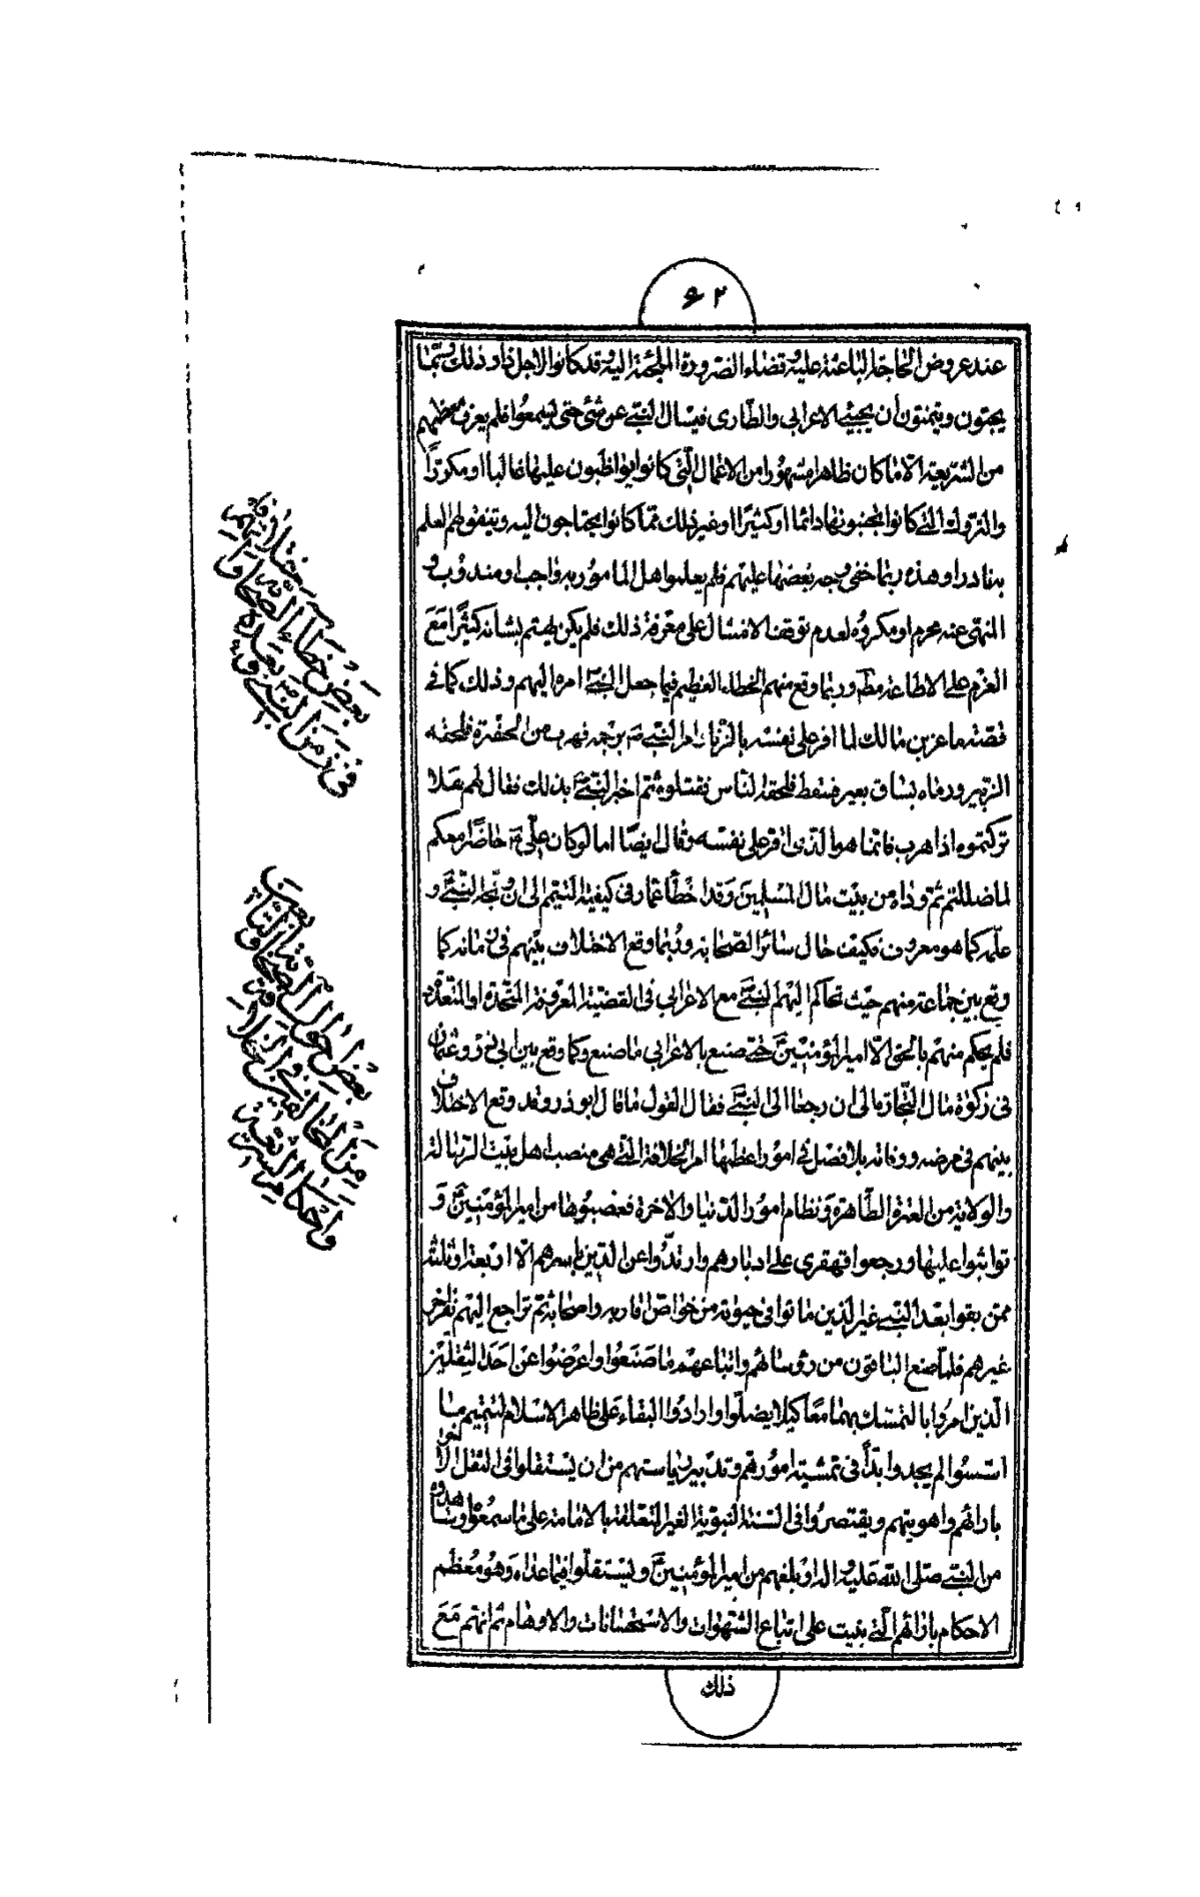 ٦٢
عند عروض الحاجة الباعثة عليه وقضاء الضرورة الملجئة اليه وقد كانوا لاجل ذا وذلك ربّما
يحبّون ويتمنّون أن يجيئ الاعرابي والطّاري فيسأل النبيّ عن شئ حتى يسمعوا فلم يعرف معظمهم
من الشريعة الّا ما كان ظاهرا مشهورا من الاعمال الّتي كانوا يواظبون عليها غالبا او مكررا
والتروك الّتي كانوا يجتنبونها دائما او كثيرا او غير ذلك ممّا كانوا يحتاجون اليه ويتفق لهم العلم
به نادرا وهذه ربما خفي وجه بعضها عليهم فلم يعلموا هل المامور به واجب او مندوب و
النهى عنه محرم او مكروه لعدم توقف الامتثال على معرفة ذلك فلم يكن يهتم بشانه كثيرا مع
العزم على الاطاعة مطـ وربما وقع منهم الخطاء العظيم فيما جعل النبيّ امره اليهم وذلك كما في
قصّة ماعز بن مالك لما اقر على نفسه بالزنا امر النبيّ ص برجمه فهرب من الحفرة فلحقه
الزبير ورماه بساق بعير فسقط فلحقه الناس فقتلوه ثم اخبر النبيّ بذلك فقال لهم هلا
تركتموه اذا هرب فانّما هو الذى اقر على نفسه وقال ايضا اما لو كان علىّ ع حاضرا معكم
لما ضللتم ثم وداه من بيت مال المسلمين وقد اخطأ عمار في كيفية التيمم الى ان نبّه النبيّ و
علّمه كما هو معروف فكيف حال سائر الصّحابة وربما وقع الاختلاف بينهم في زمانه كما
وقع بين جماعة منهم حيث تحاكم اليهم النبيّ مع الاعرابي في القضية المعروفة المتحدة او المتعددة
فلم يحكم منهم بالحق الّا امير المؤمنينّ حتى صنع بالاعرابي ما صنع وكما وقع بين ابي ذر وعثمان
في زكوة مال التجارة الى ان رجعا الى النبيّ فقال القول ما قال ابو ذر وقد وقع الاختلاف
بينهم في مرضه ووفاته بلا فصل في امور اعظمها امر الخلافة الّتي هي منصب اهل بيت الرسالة
والولاية من العترة الطّاهرة ونظام امور الدّنيا والاخرة فغصبوها من امير المؤمنينّ و
تواثبوا عليها ورجعوا قهقرى على ادبارهم وارتدّوا عن الدّين باسرهم الّا اربعة او ثلثة
ممّن بقوا بعد النبيّ غير الذين ماتوا في حيوته من خواصّ اقاربه واصحابه ثمّ تراجع اليهم نفر اخر
غيرهم فلمّا صنع الباقون من رؤسائهم واتباعهم ما صنعوا واعرضوا عن احد الثقلين
الّذين امروا بالتمسّك بهما معا كيلا يضلّوا وارادوا البقاء على ظاهر الاسلام لتتميم ما
اسّسوا لم يجدوا بدّا في تمشية امورهم وتدبير رياستهم من ان يستقلوا في الثقل الاخر
بارائهم واهويتهم ويقتصروا في السّنة النبويّة الغير المتعلقة بالامامة على ما سمعوا وشاهدوه
من النبيّ صلى الله عليه واله او بلغهم من امير المؤمنينّ ويستقلّوا فيما عداه وهو معظم
الاحكام بارائهم الّتي بنيت على اتباع الشهوات والاستحسانات والاوهام ثم انهم مع
ذلك
بعض خطاء الصّحابة
في زمن النبي وبعده
بعض احوال الصّحابة والتابعين
من المخالفين في
واحكام الشريعة